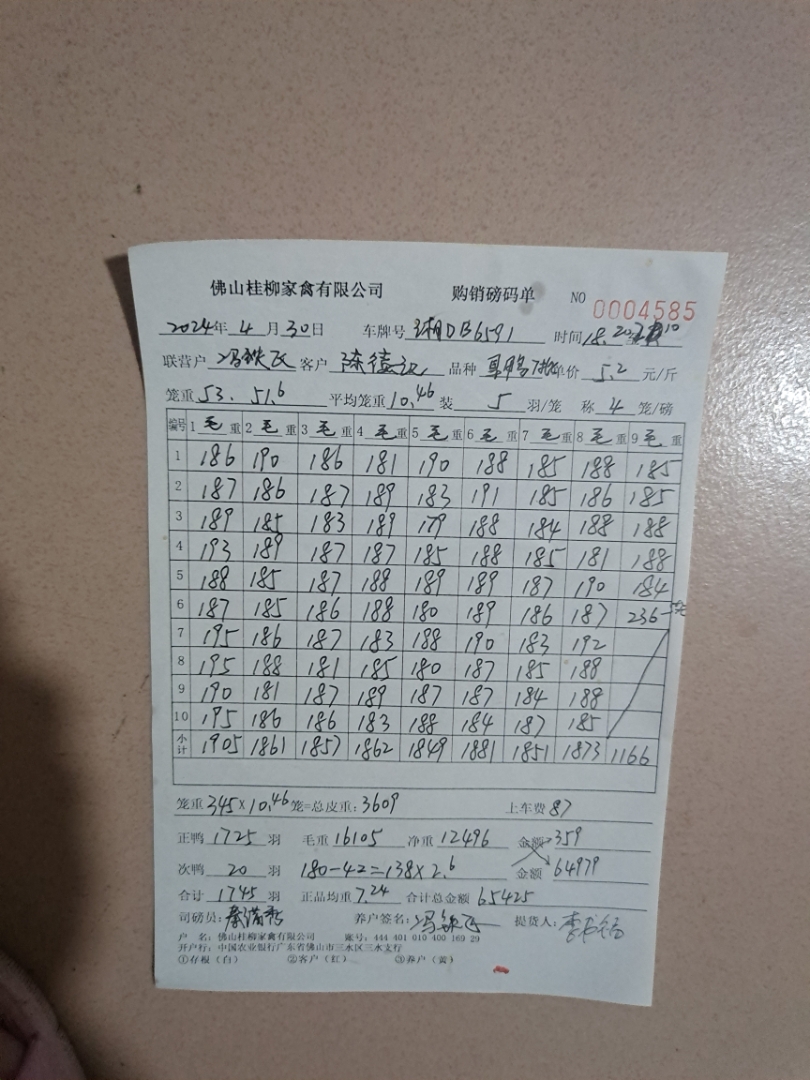 佛山桂柳家禽有限公司 购销磅码单 NO 0004585
2024年 4 月 30 日 车牌号 DB6591 时间 18.20
联营户 冯铁飞 客户 陈德 品种 单价 5.2 元/斤
笼重 53. 51.6 平均笼重 10.46 装 5 羽/笼 称 4 笼/磅
编号 1 毛 重 2 毛 重 3 毛 重 4 毛 重 5 毛 重 6 毛 重 7 毛 重 8 毛 重 9 毛 重
1 186 190 186 181 190 188 185 188 185
2 187 186 187 189 183 191 185 186 185
3 189 185 183 189 179 188 184 188 188
4 193 189 187 187 185 188 185 181 188
5 188 185 187 188 189 189 187 190 184
6 187 185 186 188 180 189 186 187 236-5笼
7 195 186 187 183 188 190 183 192
8 195 188 181 185 180 187 185 188
9 190 181 187 189 187 187 184 188
10 195 186 186 183 188 184 187 185
小计 1905 1861 1857 1862 1849 1881 1851 1873 1166
笼重 345×10.46 笼=总皮重: 3609 上车费 87
正鸭 1725 羽 毛重 16105 净重 12496 金额 359
次鸭 20 羽 180-42=138×2.6 金额 64979
合计 1745 羽 正品均重 7.24 合计总金额 65425
司磅员: 养户签名: 冯铁飞 提货人:
户 名: 佛山桂柳家禽有限公司 账号: 444 401 010 400 169 29
开户行: 中国农业银行广东省佛山市三水区三水支行
①存根（白） ②客户（红） ③养户（黄）